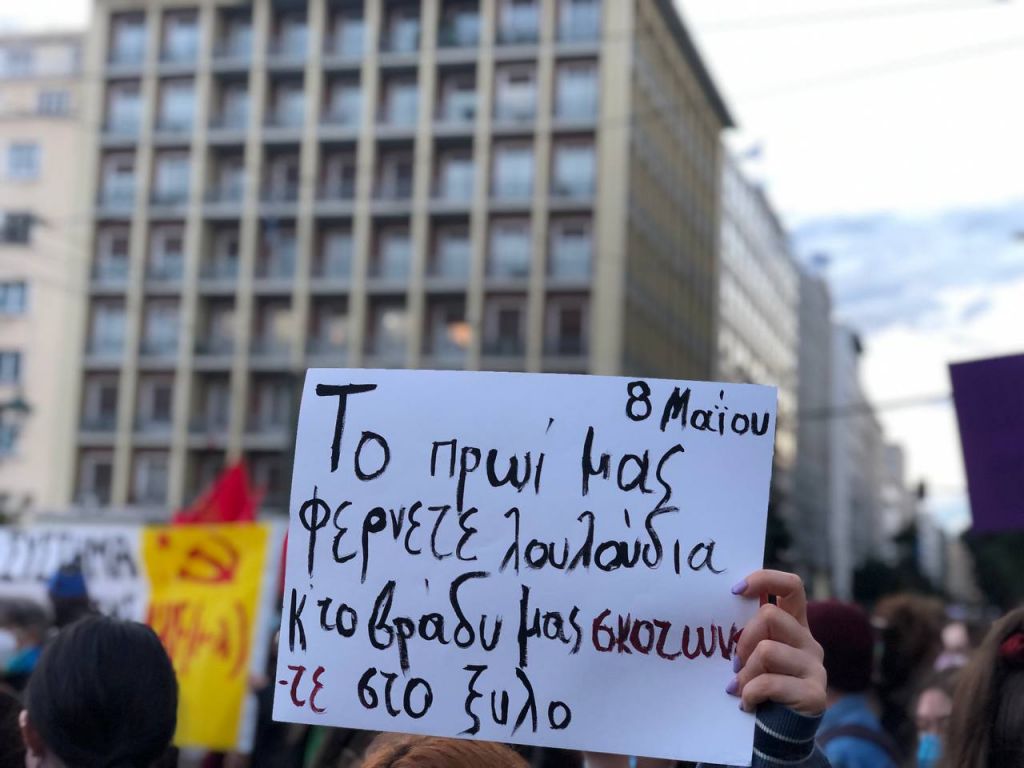 8 Μαϊου
Το πρωί μας
φερνετε λουλούδια
κ το βράδυ μας σκοτωνε
-τε στο ξυλο